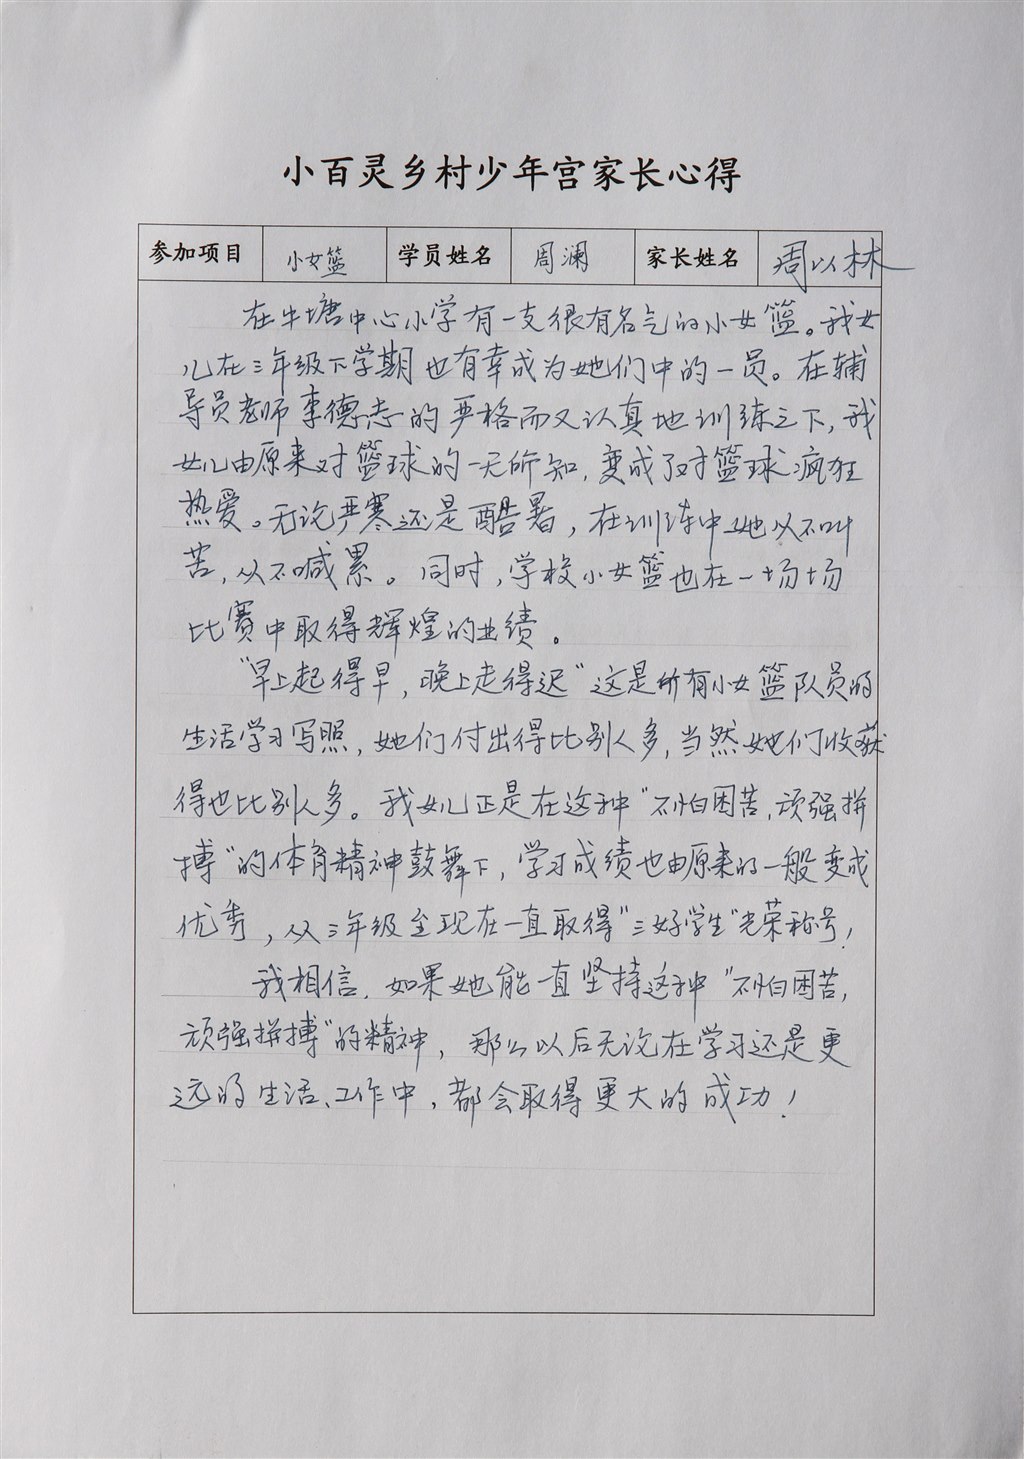 小百灵乡村少年宫家长心得
参加项目 小女篮 学员姓名 周澜 家长姓名 周以林
在牛塘中心小学有一支很有名气的小女篮。我女
儿在三年级下学期也有幸成为她们中的一员。在辅
导员老师李德志的严格而又认真地训练之下，我
女儿由原来对篮球的一无所知，变成了对篮球疯狂
热爱。无论严寒还是酷暑，在训练中她从不叫
苦，从不喊累。同时，学校小女篮也在一场场
比赛中取得辉煌的业绩。
“早上起得早，晚上走得迟”这是所有小女篮队员的
生活学习写照，她们付出得比别人多，当然她们收获
得也比别人多。我女儿正是在这种“不怕困苦，顽强拼
搏”的体育精神鼓舞下，学习成绩也由原来的一般变成
优秀，从三年级至现在一直取得“三好学生”光荣称号！
我相信，如果她能一直坚持这种“不怕困苦，
顽强拼搏”的精神，那么以后无论在学习还是更
远的生活、工作中，都会取得更大的成功！